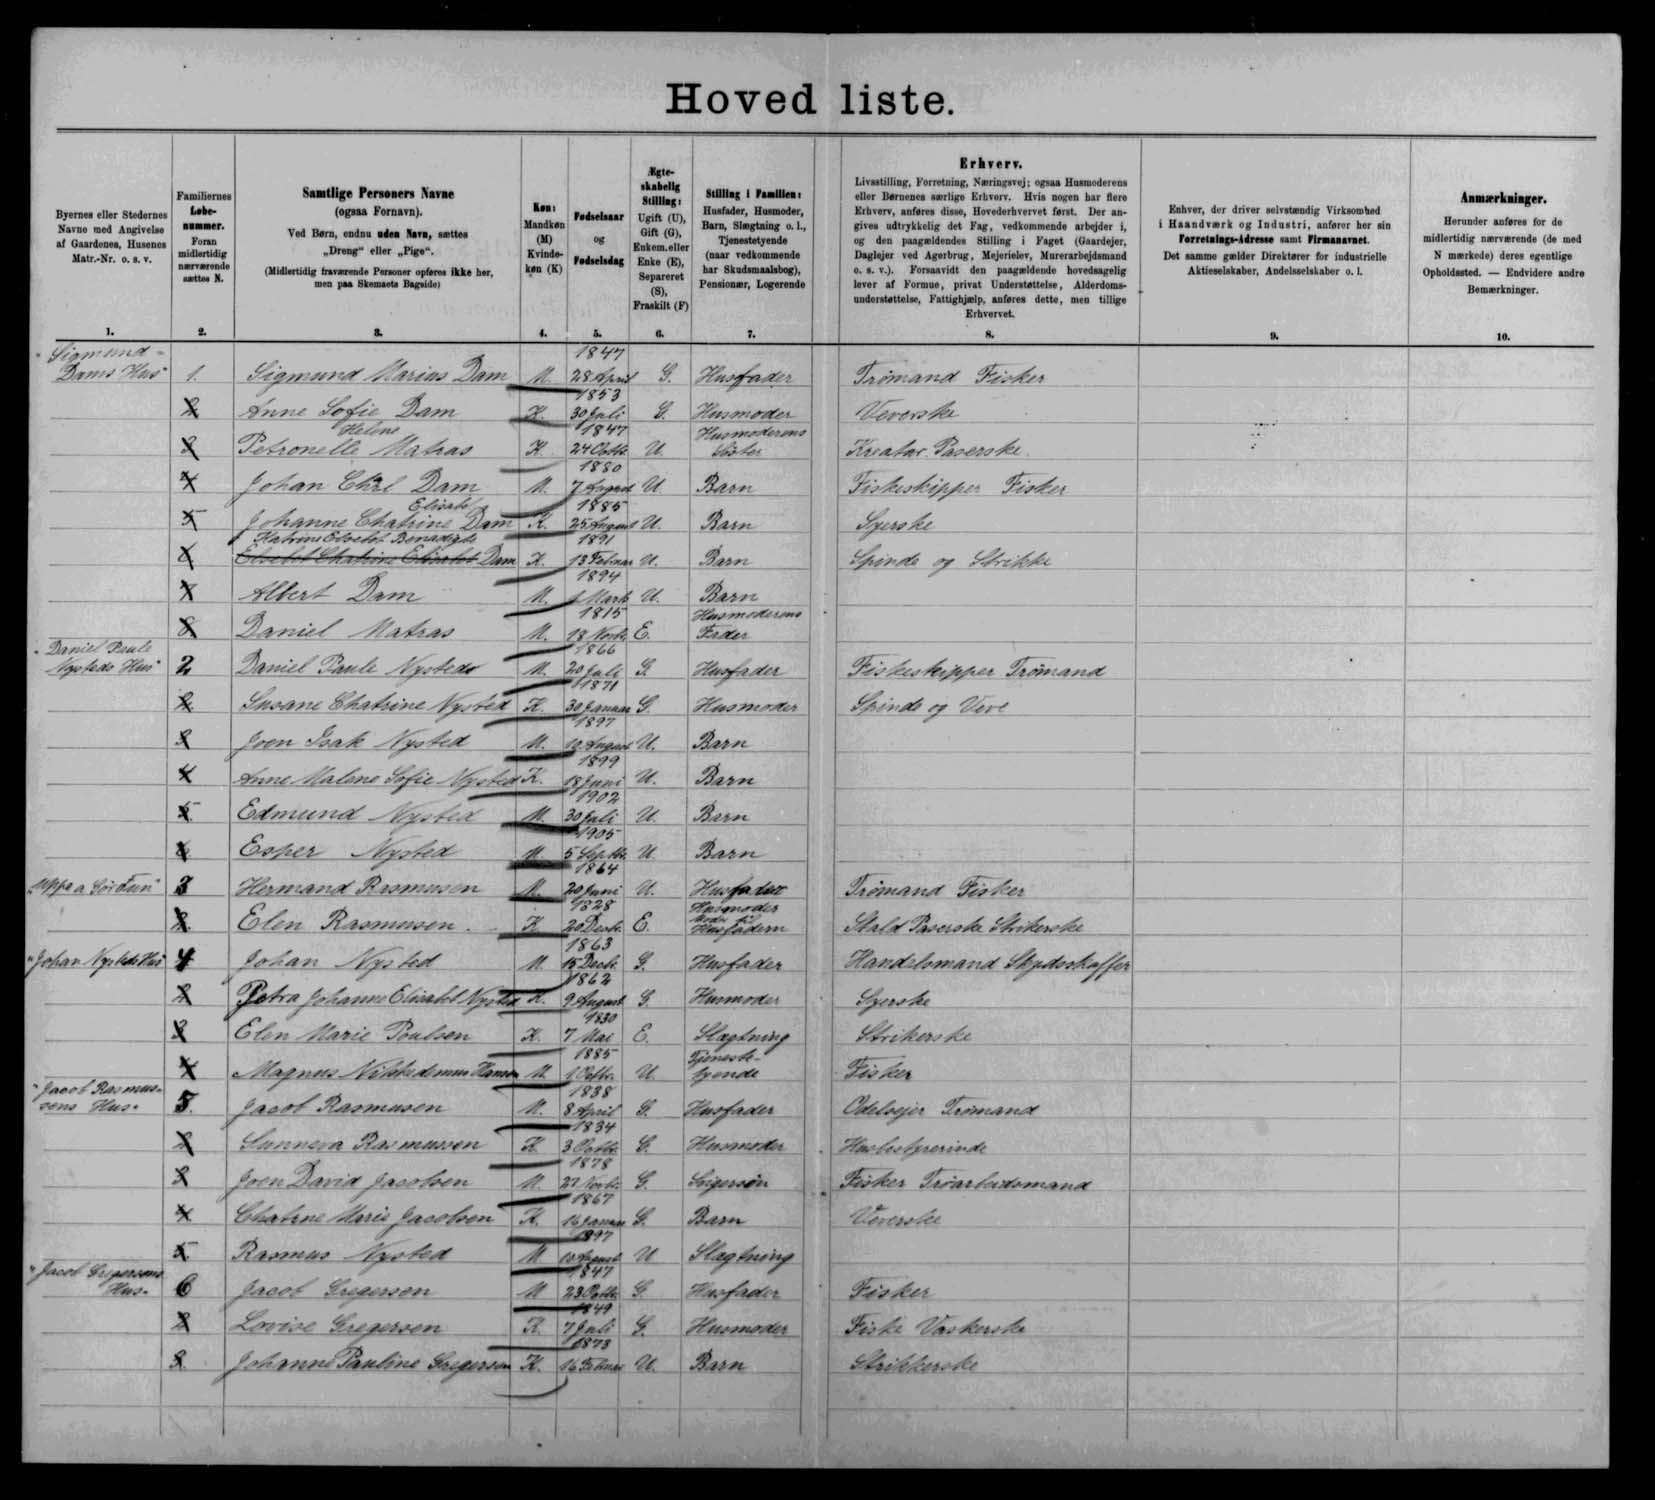 Hoved liste.
Byernes eller Stedernes
Navne med Angivelse
af Gaardenes, Husenes
Matr.-Nr. o. s. v.
1.
Familiernes
Løbe-
nummer.
Foran
midlertidig
nærværende
sættes N.
2.
Samtlige Personers Navne
(ogsaa Fornavn).
Ved Børn, endnu uden Navn, sættes
„Dreng“ eller „Pige“.
(Midlertidig fraværende Personer opføres ikke her,
men paa Skemaets Bagside)
3.
Køn:
Mandkøn
(M)
Kvinde-
køn (K)
4.
Fødselsaar
og
Fødselsdag
5.
Ægte-
skabelig
Stilling:
Ugift (U),
Gift (G),
Enkem. eller
Enke (E),
Separeret
(S),
Fraskilt (F)
6.
Stilling i Familien:
Husfader, Husmoder,
Barn, Slægtning o. l.,
Tjenestetyende
(naar vedkommende
har Skudsmaalsbog),
Pensionær, Logerende
7.
Erhverv.
Livsstilling, Forretning, Næringsvej; ogsaa Husmoderens
eller Børnenes særlige Erhverv. Hvis nogen har flere
Erhverv, anføres disse, Hovederhvervet først. Der an-
gives udtrykkelig det Fag, vedkommende arbejder i,
og den paagældendes Stilling i Faget (Gaardejer,
Daglejer ved Agerbrug, Mejerielev, Murerarbejdsmand
o. s. v.). Forsaavidt den paagældende hovedsagelig
lever af Formue, privat Understøttelse, Alderdoms-
understøttelse, Fattighjælp, anføres dette, men tillige
Erhvervet.
8.
Enhver, der driver selvstændig Virksomhed
i Haandværk og Industri, anfører her sin
Forretnings-Adresse samt Firmanavnet.
Det samme gælder Direktører for industrielle
Aktieselskaber, Andelsselskaber o. l.
9.
Anmærkninger.
Herunder anføres for de
midlertidig nærværende (de med
N mærkede) deres egentlige
Opholdssted. — Endvidere andre
Bemærkninger.
10.
Sigmund-
Dams Hus" 1. Sigmund Marius Dam M. 1847 28 April G. Husfader Trømand Fisker
2 Anne Sofie Dam K. 1853 30 Juli G. Husmoder Veverske
Helene
3 Petronelle Matras K. 1847 24 Octb. U. Husmoderens Søster Kreatur Paserske
4 Johan Carl Dam M. 1880 7 August U. Barn Fiskeskipper Fisker
Elisabt
5 Johanne Chatrine Dam K. 1885 25 August U. Barn Syerske
Katrine Elsebet Benadigte
6 Elsebet Chatrine Elisabet Dam K. 1891 13 Februar U. Barn Spinde og Strikke
7 Albert Dam M. 1894 Marts U. Barn
8 Daniel Matras M. 1815 18 Novb. E. Husmoderens Fader
"Daniel Paule
Nysteds Hus" 2 Daniel Paule Nysted M. 1866 20 Juli G. Husfader Fiskeskipper Trømand
2 Susane Chatrine Nysted K. 1871 30 Januar G. Husmoder Spinde og Veve
3 Joen Isak Nysted M. 1897 10 August U. Barn
4 Anne Malene Sofie Nysted K. 1899 18 Juni U. Barn
5 Edmund Nysted M. 1902 30 Juli U. Barn
6 Esper Nysted M 1905 5 Septb. U. Barn
3 Hermand Rasmusen M. 1864 20 Juni U. Husfader Trømand Fisker
2 Elen Rasmusen K 1828 20 Decb. E. Husmoder Moder til Husfadern Stald Paserske Strikerske
"Johan Nysteds Hus" 4 Johan Nysted M. 1863 15 Decb. G. Husfader Handelsmand Skydsskaffer
2 Petra Johanne Elisabet Nysted K. 1862 9 August G. Husmoder Syerske
3 Elen Marie Poulsen K. 1830 7 Mai E. Slægtning Strikerske
4 Magnus Hansen M 1885 1 Octb. U. Tjeneste-tyende Fisker
"Jacob Rasmus-
sens Hus" 5. Jacob Rasmusen M. 1838 8 April G. Husfader Odelsejer Trømand
2 Sunneva Rasmussen K 1834 3 Octb. G. Husmoder Husbestyrerinde
3 Joen David Jacobsen M. 1878 27 Novb. G. Svigersøn Fisker Trøarbeidsmand
4 Chatrne Marie Jacobsen K. 1867 16 Januar G. Barn Veverske
5 Rasmus Nysted M 1897 10 August U Slægtning
"Jacob Gregersens
Hus" 6 Jacob Gregersen M 1847 23 Octb. G Husfader Fisker
2 Lovise Gregersen K. 1849 7 Juli G. Husmoder Fiske Vaskerske
3. Johanne Pauline Gregersen K. 1878 16 Februar U. Barn Strikkerske